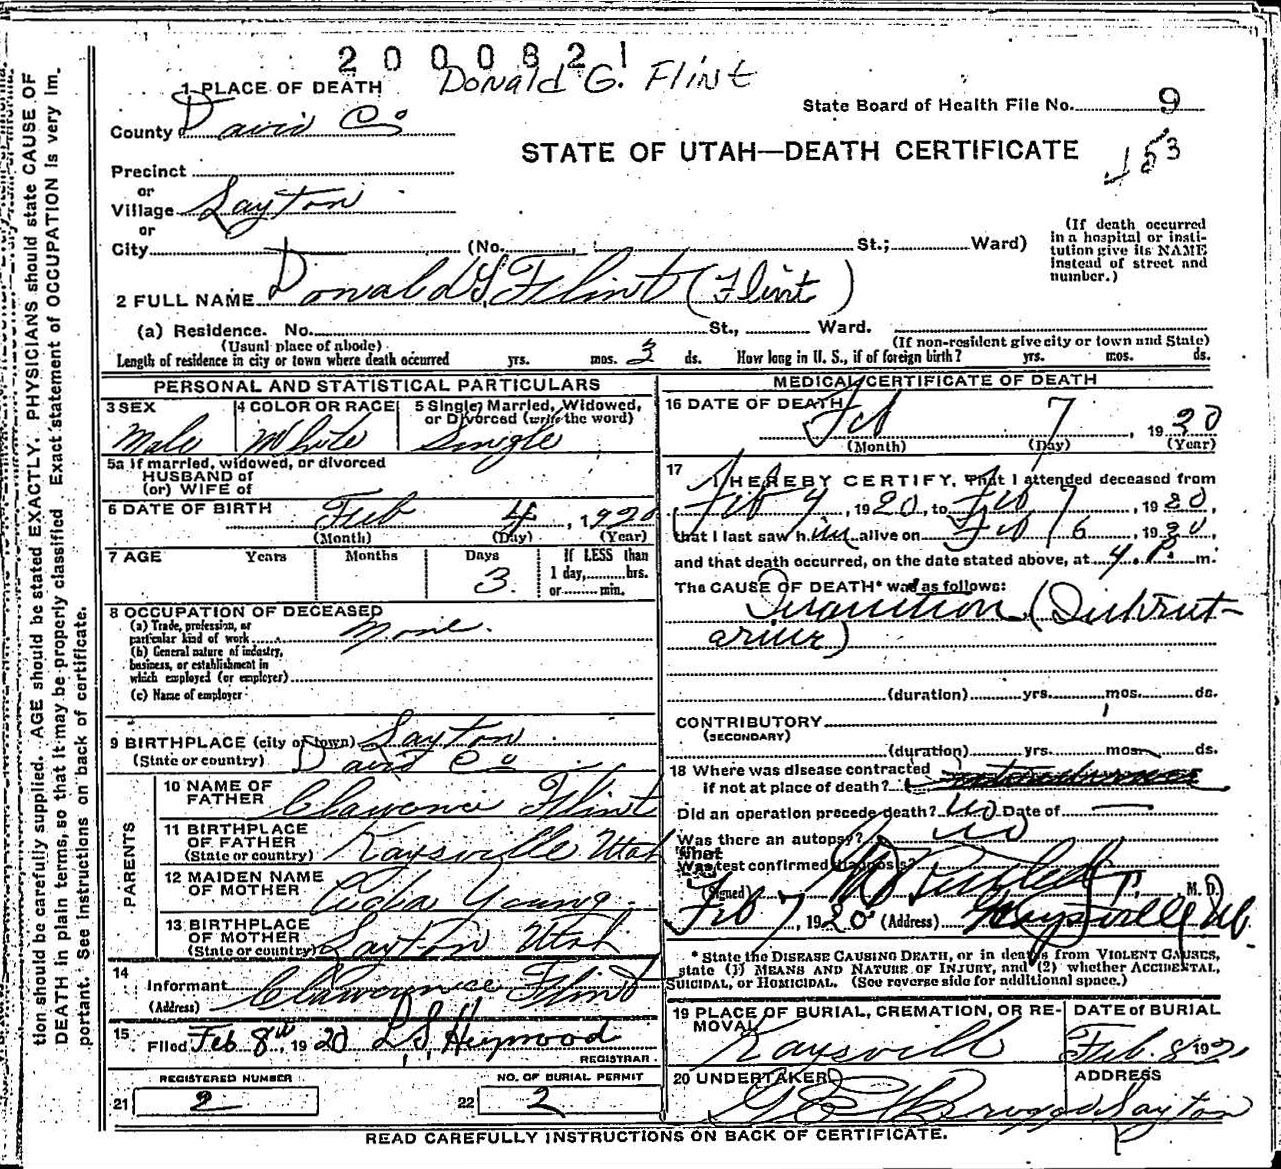 2 0 0 0 8 2 1
Donald G. Flint
1 PLACE OF DEATH
State Board of Health File No. 9
County Davis Co.
STATE OF UTAH—DEATH CERTIFICATE
153
Precinct
or
Village Layton
or
City (No. , St.; Ward)
(If death occurred
in a hospital or insti-
tution give its NAME
instead of street and
number.)
2 FULL NAME Donald G. Flint (Flint)
(a) Residence. No. St., Ward.
(Usual place of abode)
(If non-resident give city or town and State)
Length of residence in city or town where death occurred yrs. mos. 3 ds. How long in U. S., if of foreign birth? yrs. mos. ds.
PERSONAL AND STATISTICAL PARTICULARS
3 SEX
Male
4 COLOR OR RACE
White
5 Single, Married, Widowed,
or Divorced (write the word)
Single
5a If married, widowed, or divorced
HUSBAND of
(or) WIFE of
6 DATE OF BIRTH Feb 4, 1920
(Month) (Day) (Year)
7 AGE Years Months Days If LESS than
1 day, hrs.
3. or min.
8 OCCUPATION OF DECEASED
(a) Trade, profession, or
particular kind of work None.
(b) General nature of industry,
business, or establishment in
which employed (or employer)
(c) Name of employer
9 BIRTHPLACE (city or town) Layton
(State or country) Davis Co
PARENTS
10 NAME OF
FATHER Clawence Flint
11 BIRTHPLACE
OF FATHER
(State or country) Kaysville Utah
12 MAIDEN NAME
OF MOTHER Young
13 BIRTHPLACE
OF MOTHER
(State or country) Layton Utah
14
Informant Clawrence Flint
(Address)
15
Filed Feb 8th, 1920 L. S. Heywood
REGISTRAR
REGISTERED NUMBER
21 2
NO. OF BURIAL PERMIT
22 2
MEDICAL CERTIFICATE OF DEATH
16 DATE OF DEATH
Feb 7, 1920
(Month) (Day) (Year)
17
I HEREBY CERTIFY, That I attended deceased from
Feb 4, 1920, to Feb 7, 1920,
that I last saw him alive on Feb 6, 1920,
and that death occurred, on the date stated above, at 4 P. m.
The CAUSE OF DEATH* was as follows:
(duration) yrs. mos. ds.
CONTRIBUTORY
(SECONDARY)
(duration) yrs. mos. ds.
18 Where was disease contracted
if not at place of death?
Did an operation precede death? No Date of
Was there an autopsy? No
What test confirmed diagnosis?
(Signed) M. D.
Feb 7, 1920 (Address) Kaysville, Ut.
* State the DISEASE CAUSING DEATH, or in deaths from VIOLENT CAUSES,
state (1) MEANS AND NATURE OF INJURY, and (2) whether ACCIDENTAL,
SUICIDAL, or HOMICIDAL. (See reverse side for additional space.)
19 PLACE OF BURIAL, CREMATION, OR RE-
MOVAL
Kaysville
DATE OF BURIAL
Feb. 8 192
20 UNDERTAKER
ADDRESS
Layton
READ CAREFULLY INSTRUCTIONS ON BACK OF CERTIFICATE.
tion should be carefully supplied. AGE should be stated EXACTLY. PHYSICIANS should state CAUSE OF
DEATH in plain terms, so that it may be properly classified. Exact statement of OCCUPATION is very im-
portant. See instructions on back of certificate.